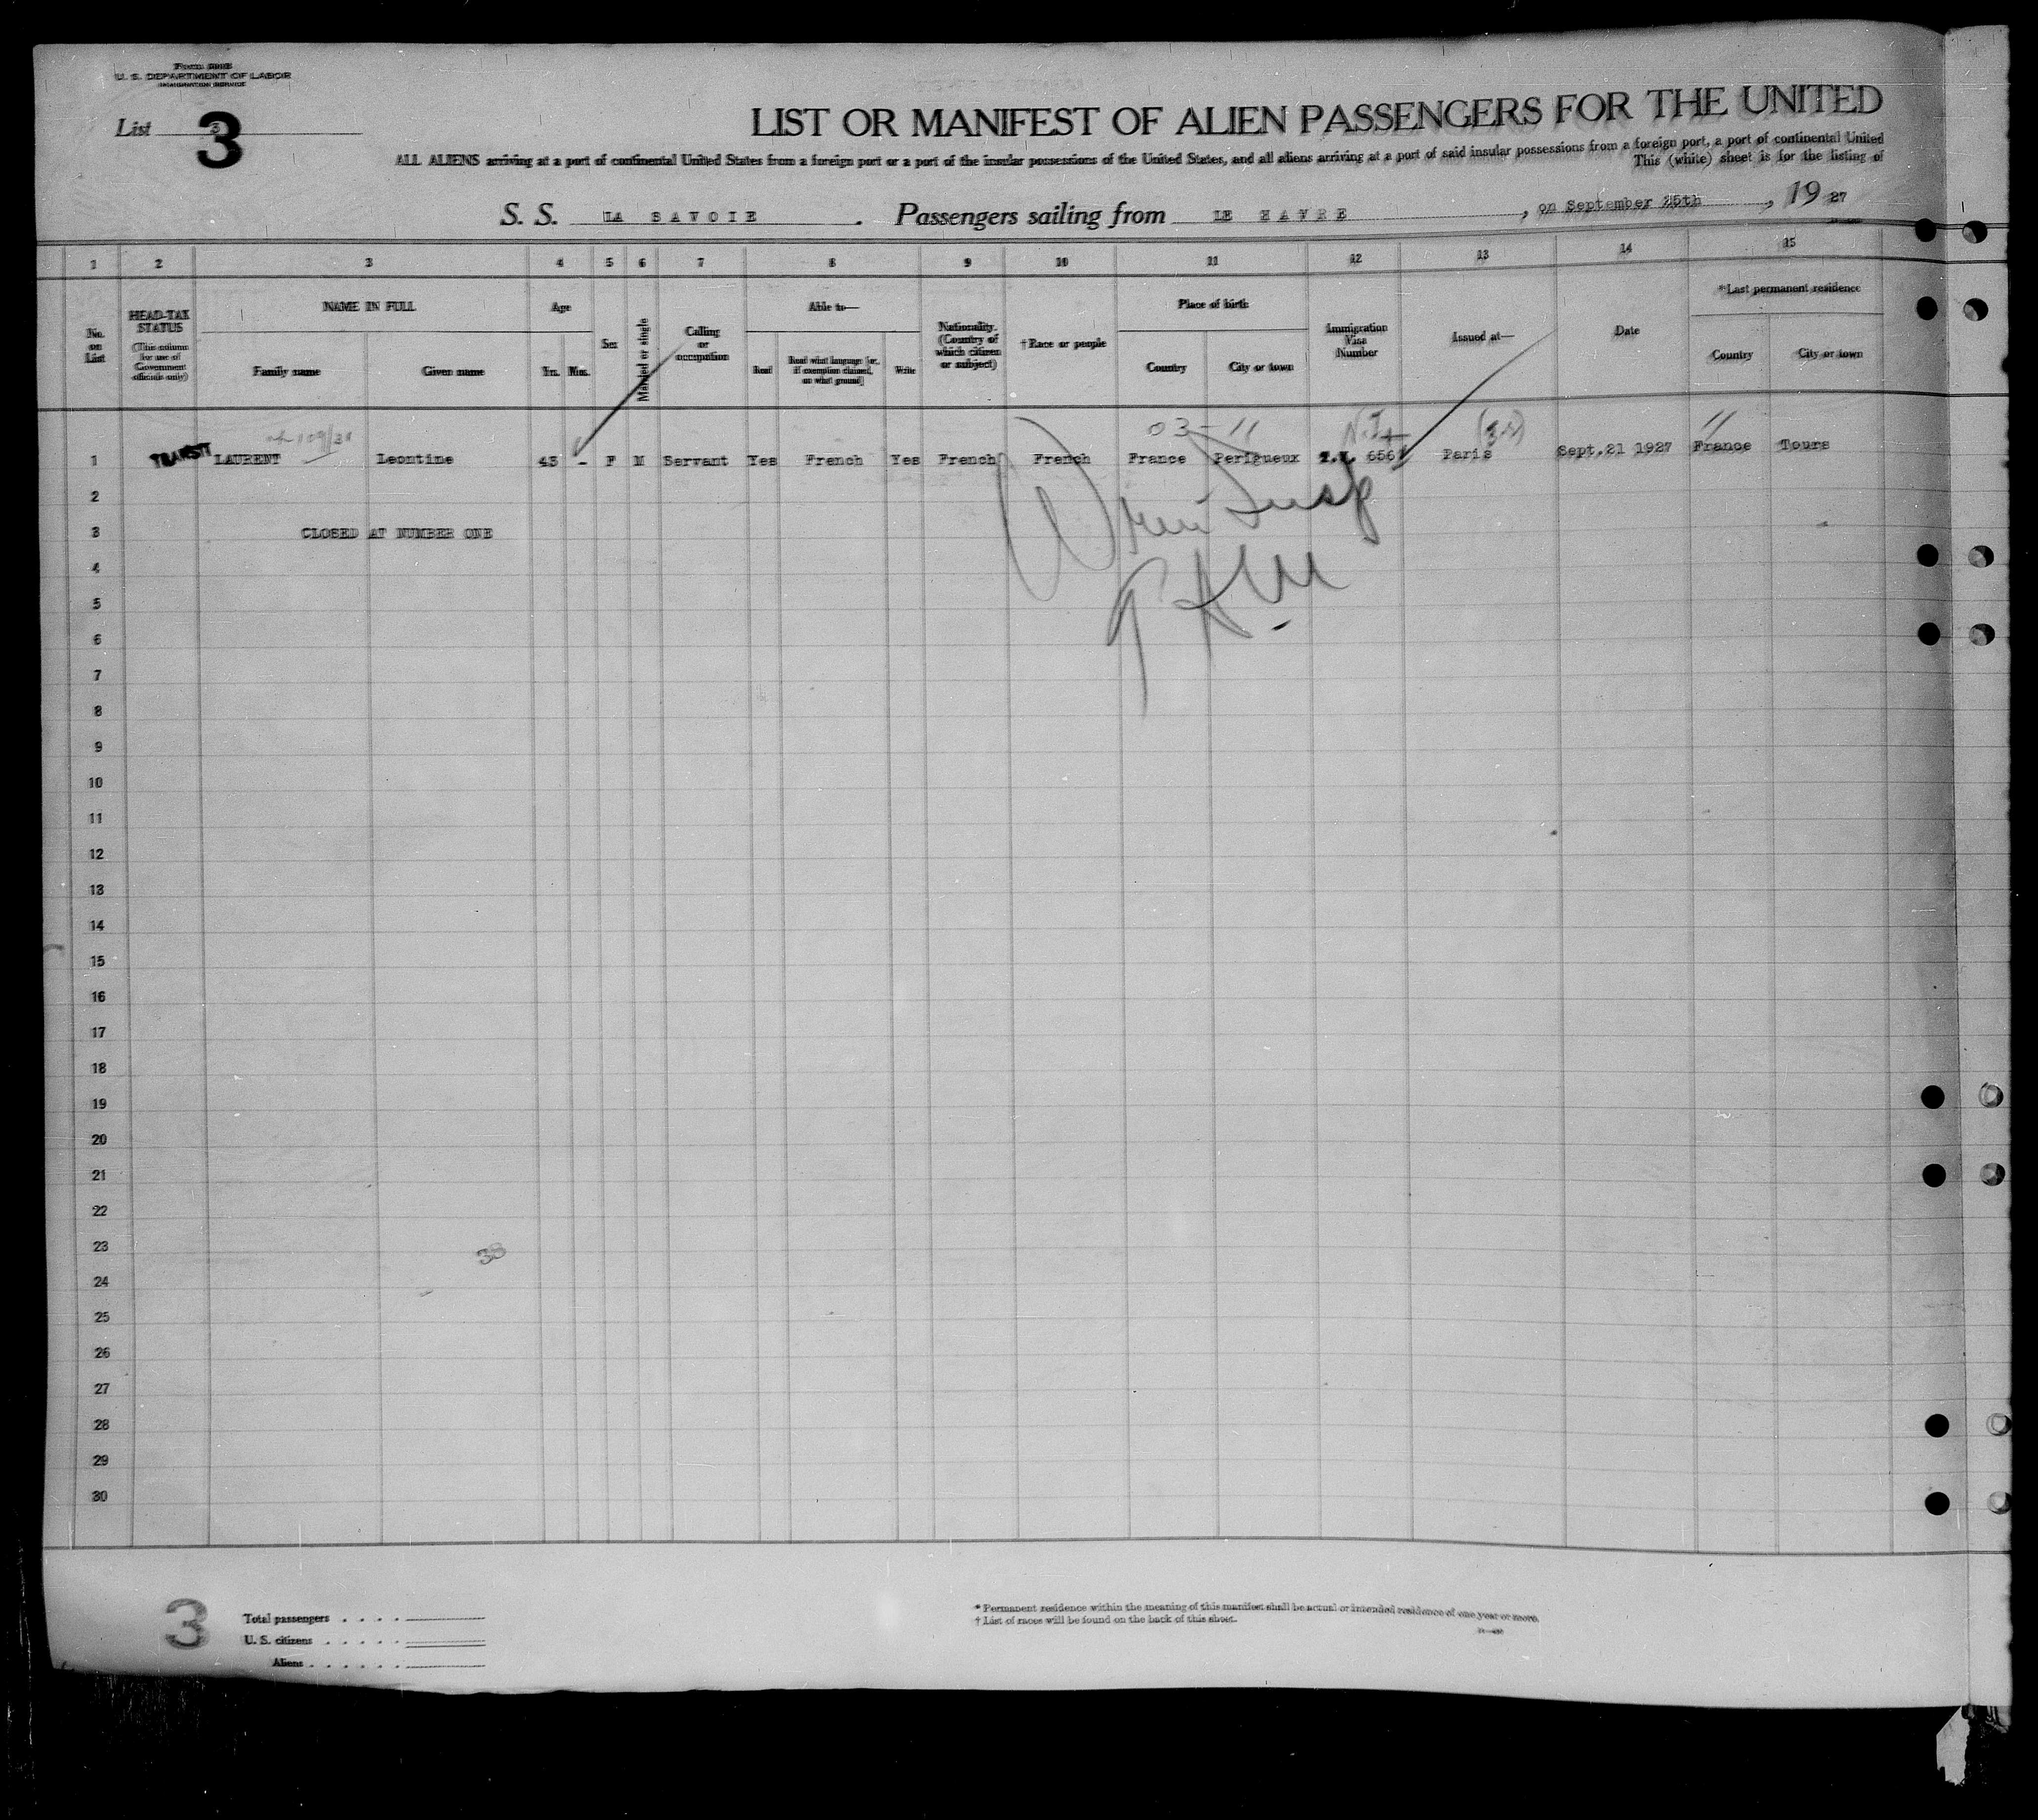 U. S. DEPARTMENT OF LABOR
IMMIGRATION SERVICE
List 3
3
LIST OR MANIFEST OF ALIEN PASSENGERS FOR THE UNITED
ALL ALIENS arriving at a port of continental United States from a foreign port or a port of the insular possessions of the United States, and all aliens arriving at a port of said insular possessions from a foreign port, a port of continental United
This (white) sheet is for the listing of
S. S. LA SAVOIE . Passengers sailing from LE HAVRE , on September 25th , 19 27
1 2 3 4 5 6 7 8 9 10 11 12 13 14 15
No. on List
HEAD-TAX STATUS (This column for use of Government officials only)
NAME IN FULL
Family name
Given name
Age
Yrs. Mos.
Sex
Married or single
Calling or occupation
Able to—
Read
Read what language [or, if exemption claimed, on what ground]
Write
Nationality. (Country of which citizen or subject)
† Race or people
Place of birth
Country
City or town
Immigration Visa Number
Issued at—
Date
*Last permanent residence
Country
City or town
03-11 11
1 TRANSIT LAURENT Leontine 43 - F M Servant Yes French Yes French French France Perigueux 656 Paris Sept.21 1927 France Tours
2
3 CLOSED AT NUMBER ONE
4
5
6
7
8
9
10
11
12
13
14
15
16
17
18
19
20
21
22
23
38
24
25
26
27
28
29
30
3
Total passengers . . . .
U. S. citizens . . . . .
Aliens . . . . . .
* Permanent residence within the meaning of this manifest shall be actual or intended residence of one year or more.
† List of races will be found on the back of this sheet.